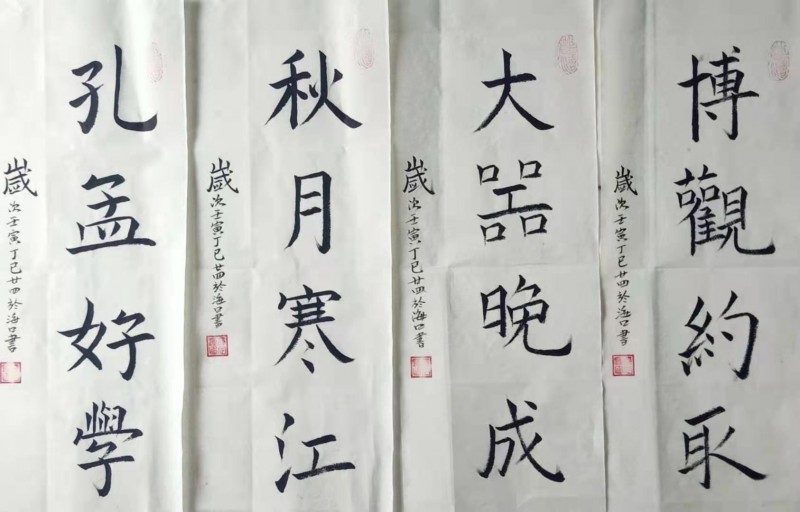 博觀約取
歲次壬寅丁巳廿四於海口書
大器晚成
歲次壬寅丁巳廿四於海口書
秋月寒江
歲次壬寅丁巳廿四於海口書
孔孟好學
歲次壬寅丁巳廿四於海口書